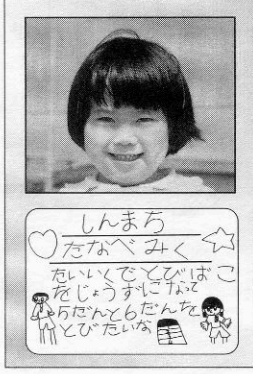 しんまち
たなべ みく
たいいくで とびばこ
をじょうずになって
5だんと6だんを
とびたいな